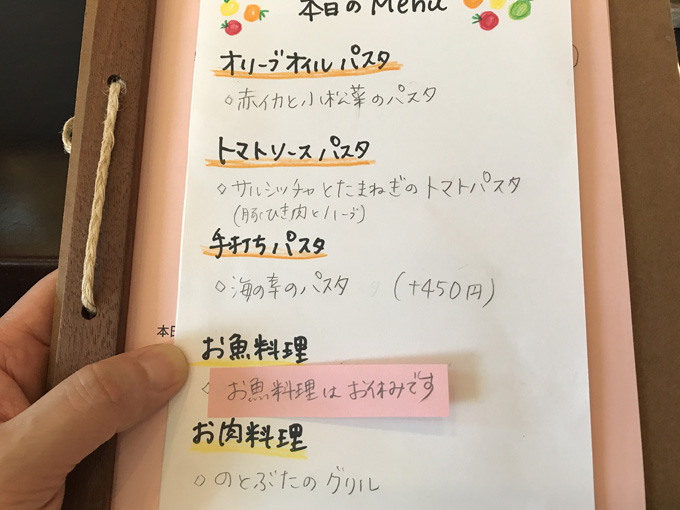 本日のMenu
オリーブオイルパスタ
◇赤イカと小松菜のパスタ
トマトソースパスタ
◇サルシッチャとたまねぎのトマトパスタ
(豚ひき肉とハーブ)
手打ちパスタ
◇海の幸のパスタ (+450円)
本日
お魚料理
◇お魚料理はお休みです
お肉料理
◇のとぶたのグリル